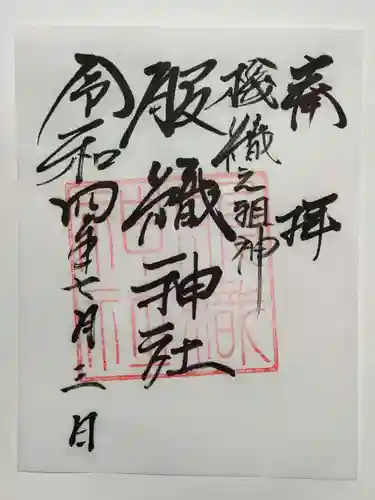 奉拝
機織之祖神
服織神社
令和四年七月三日